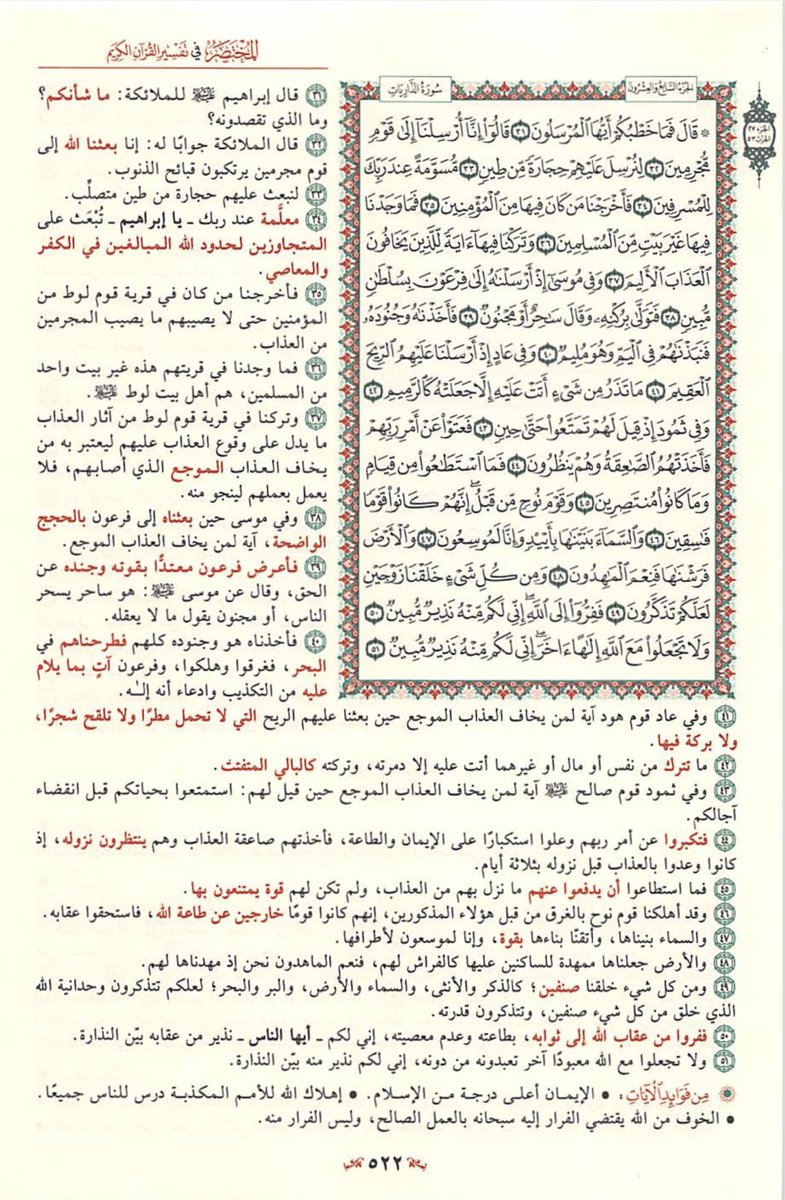 المختصر في تفسير القرآن الكريم
الجزء السابع والعشرون
سورة الذاريات
الجزء ٢٧
الحزب ٥٣
۞ قَالَ فَمَا خَطْبُكُمْ أَيُّهَا ٱلْمُرْسَلُونَ ٣١ قَالُوٓا۟ إِنَّآ أُرْسِلْنَآ إِلَىٰ قَوْمٍ
مُّجْرِمِينَ ٣٢ لِنُرْسِلَ عَلَيْهِمْ حِجَارَةً مِّن طِينٍ ٣٣ مُّسَوَّمَةً عِندَ رَبِّكَ
لِلْمُسْرِفِينَ ٣٤ فَأَخْرَجْنَا مَن كَانَ فِيهَا مِنَ ٱلْمُؤْمِنِينَ ٣٥ فَمَا وَجَدْنَا
فِيهَا غَيْرَ بَيْتٍ مِّنَ ٱلْمُسْلِمِينَ ٣٦ وَتَرَكْنَا فِيهَآ ءَايَةً لِّلَّذِينَ يَخَافُونَ
ٱلْعَذَابَ ٱلْأَلِيمَ ٣٧ وَفِى مُوسَىٰٓ إِذْ أَرْسَلْنَـٰهُ إِلَىٰ فِرْعَوْنَ بِسُلْطَـٰنٍ
مُّبِينٍ ٣٨ فَتَوَلَّىٰ بِرُكْنِهِۦ وَقَالَ سَـٰحِرٌ أَوْ مَجْنُونٌ ٣٩ فَأَخَذْنَـٰهُ وَجُنُودَهُۥ
فَنَبَذْنَـٰهُمْ فِى ٱلْيَمِّ وَهُوَ مُلِيمٌ ٤٠ وَفِى عَادٍ إِذْ أَرْسَلْنَا عَلَيْهِمُ ٱلرِّيحَ
ٱلْعَقِيمَ ٤١ مَا تَذَرُ مِن شَىْءٍ أَتَتْ عَلَيْهِ إِلَّا جَعَلَتْهُ كَٱلرَّمِيمِ ٤٢
وَفِى ثَمُودَ إِذْ قِيلَ لَهُمْ تَمَتَّعُوا۟ حَتَّىٰ حِينٍ ٤٣ فَعَتَوْا۟ عَنْ أَمْرِ رَبِّهِمْ
فَأَخَذَتْهُمُ ٱلصَّـٰعِقَةُ وَهُمْ يَنظُرُونَ ٤٤ فَمَا ٱسْتَطَـٰعُوا۟ مِن قِيَامٍ
وَمَا كَانُوا۟ مُنتَصِرِينَ ٤٥ وَقَوْمَ نُوحٍ مِّن قَبْلُ ۖ إِنَّهُمْ كَانُوا۟ قَوْمًا
فَـٰسِقِينَ ٤٦ وَٱلسَّمَآءَ بَنَيْنَـٰهَا بِأَيْي۟دٍ وَإِنَّا لَمُوسِعُونَ ٤٧ وَٱلْأَرْضَ
فَرَشْنَـٰهَا فَنِعْمَ ٱلْمَـٰهِدُونَ ٤٨ وَمِن كُلِّ شَىْءٍ خَلَقْنَا زَوْجَيْنِ
لَعَلَّكُمْ تَذَكَّرُونَ ٤٩ فَفِرُّوٓا۟ إِلَى ٱللَّهِ ۖ إِنِّى لَكُم مِّنْهُ نَذِيرٌ مُّبِينٌ ٥٠
وَلَا تَجْعَلُوا۟ مَعَ ٱللَّهِ إِلَـٰهًا ءَاخَرَ ۖ إِنِّى لَكُم مِّنْهُ نَذِيرٌ مُّبِينٌ ٥١
٣١ قال إبراهيم ﷺ للملائكة: ما شأنكم؟
وما الذي تقصدونه؟
٣٢ قال الملائكة جوابًا له: إنا بعثنا الله إلى
قوم مجرمين يرتكبون قبائح الذنوب.
٣٣ لنبعث عليهم حجارة من طين متصلِّب.
٣٤ معلَّمة عند ربك ـ يا إبراهيم ـ تُبْعَث على
المتجاوزين لحدود الله المبالغين في الكفر
والمعاصي.
٣٥ فأخرجنا من كان في قرية قوم لوط من
المؤمنين حتى لا يصيبهم ما يصيب المجرمين
من العذاب.
٣٦ فما وجدنا في قريتهم هذه غير بيت واحد
من المسلمين، هم أهل بيت لوط ﷺ.
٣٧ وتركنا في قرية قوم لوط من آثار العذاب
ما يدل على وقوع العذاب عليهم ليعتبر به من
يخاف العذاب الموجع الذي أصابهم، فلا
يعمل بعملهم لينجو منه.
٣٨ وفي موسى حين بعثناه إلى فرعون بالحجج
الواضحة، آية لمن يخاف العذاب الموجع.
٣٩ فأعرض فرعون معتدًّا بقوته وجنده عن
الحق، وقال عن موسى ﷺ: هو ساحر يسحر
الناس، أو مجنون يقول ما لا يعقله.
٤٠ فأخذناه هو وجنوده كلهم فطرحناهم في
البحر، فغرقوا وهلكوا، وفرعون آتٍ بما يلام
عليه من التكذيب وادعاء أنه إلـٰه.
٤١ وفي عاد قوم هود آية لمن يخاف العذاب الموجع حين بعثنا عليهم الريح التي لا تحمل مطرًا ولا تلقح شجرًا،
ولا بركة فيها.
٤٢ ما تترك من نفس أو مال أو غيرهما أتت عليه إلا دمرته، وتركته كالبالي المتفتت.
٤٣ وفي ثمود قوم صالح ﷺ آية لمن يخاف العذاب الموجع حين قيل لهم: استمتعوا بحياتكم قبل انقضاء
آجالكم.
٤٤ فتكبروا عن أمر ربهم وعلوا استكبارًا على الإيمان والطاعة، فأخذتهم صاعقة العذاب وهم ينتظرون نزوله، إذ
كانوا وعدوا بالعذاب قبل نزوله بثلاثة أيام.
٤٥ فما استطاعوا أن يدفعوا عنهم ما نزل بهم من العذاب، ولم تكن لهم قوة يمتنعون بها.
٤٦ وقد أهلكنا قوم نوح بالغرق من قبل هؤلاء المذكورين، إنهم كانوا قومًا خارجين عن طاعة الله، فاستحقوا عقابه.
٤٧ والسماء بنيناها، وأتقنّا بناءها بقوة، وإنا لموسعون لأطرافها.
٤٨ والأرض جعلناها ممهدة للساكنين عليها كالفراش لهم، فنعم الماهدون نحن إذ مهدناها لهم.
٤٩ ومن كل شيء خلقنا صنفين؛ كالذكر والأنثى، والسماء والأرض، والبر والبحر؛ لعلكم تتذكرون وحدانية الله
الذي خلق من كل شيء صنفين، وتتذكرون قدرته.
٥٠ ففروا من عقاب الله إلى ثوابه، بطاعته وعدم معصيته، إني لكم ـ أيها الناس ـ نذير من عقابه بيّن النذارة.
٥١ ولا تجعلوا مع الله معبودًا آخر تعبدونه من دونه، إني لكم نذير منه بيّن النذارة.
من فوائد الآيات: • الإيمان أعلى درجة من الإسلام. • إهلاك الله للأمم المكذبة درس للناس جميعًا.
• الخوف من الله يقتضي الفرار إليه سبحانه بالعمل الصالح، وليس الفرار منه.
٥٢٢